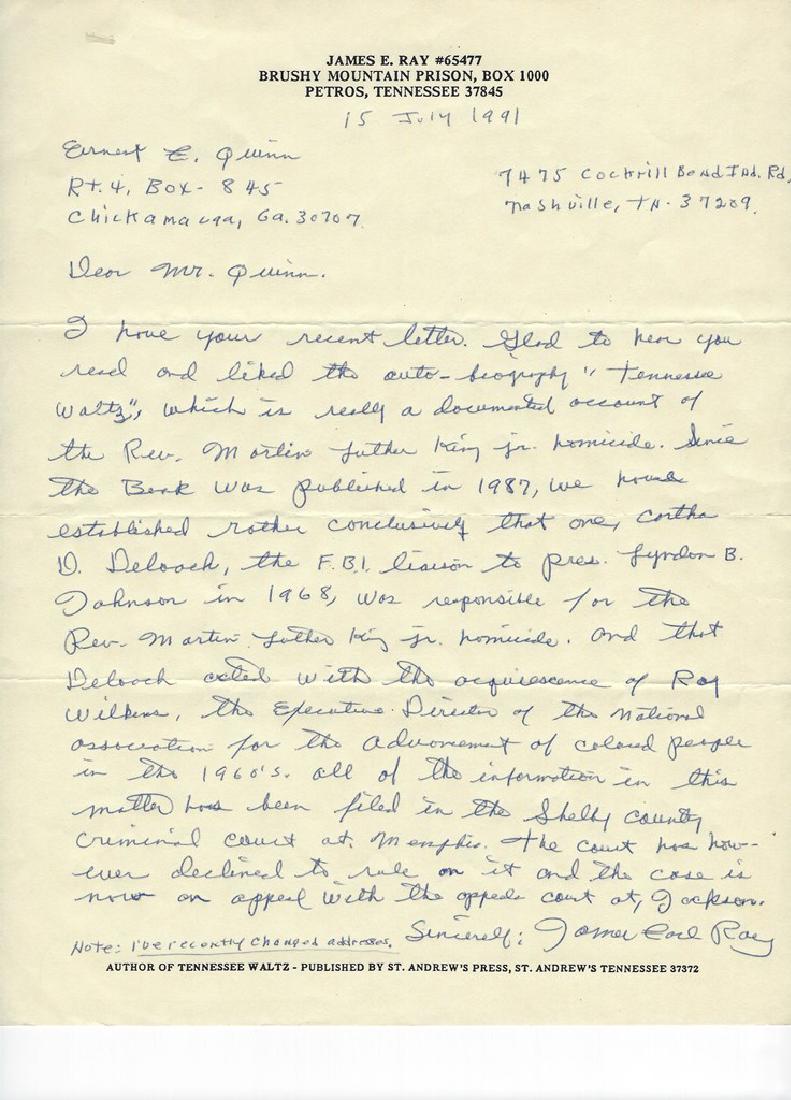 JAMES E. RAY #65477
BRUSHY MOUNTAIN PRISON, BOX 1000
PETROS, TENNESSEE 37845
15 July 1991
Ernest E. Quinn
Rt. 4, Box - 845
Chickamauga, Ga. 30707
7475 Cockrill Bend Ind. Rd,
Nashville, TN. 37209.
Dear Mr. Quinn.
I have your recent letter. Glad to hear you
read and liked the auto-biography "Tennessee
Waltz", which is really a documented account of
the Rev. Martin Luther King jr. homicide. Since
the Book was published in 1987, we have
established rather conclusively that one, Cartha
D. Deloach, the F.B.I. liaison to pres. Lyndon B.
Johnson in 1968, was responsible for the
Rev. Martin Luther King jr. homicide. And that
Deloach acted with the acquiescence of Roy
Wilkins, the Executive Director of the National
association for the advancement of colored people
in the 1960's. all of the information in this
matter has been filed in the Shelby county
criminal court at, Memphis. The court has how-
ever declined to rule on it and the case is
now on appeal with the appeals court at, Jackson.
Note: I've recently changed addresses. Sincerely: James Earl Ray
AUTHOR OF TENNESSEE WALTZ - PUBLISHED BY ST. ANDREW'S PRESS, ST. ANDREW'S TENNESSEE 37372